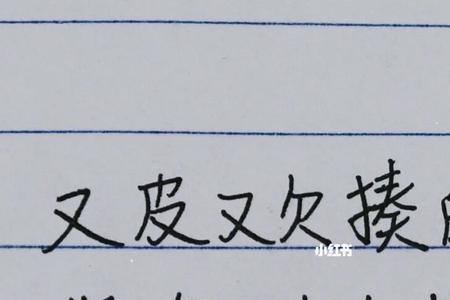 又皮又欠揍
小红书